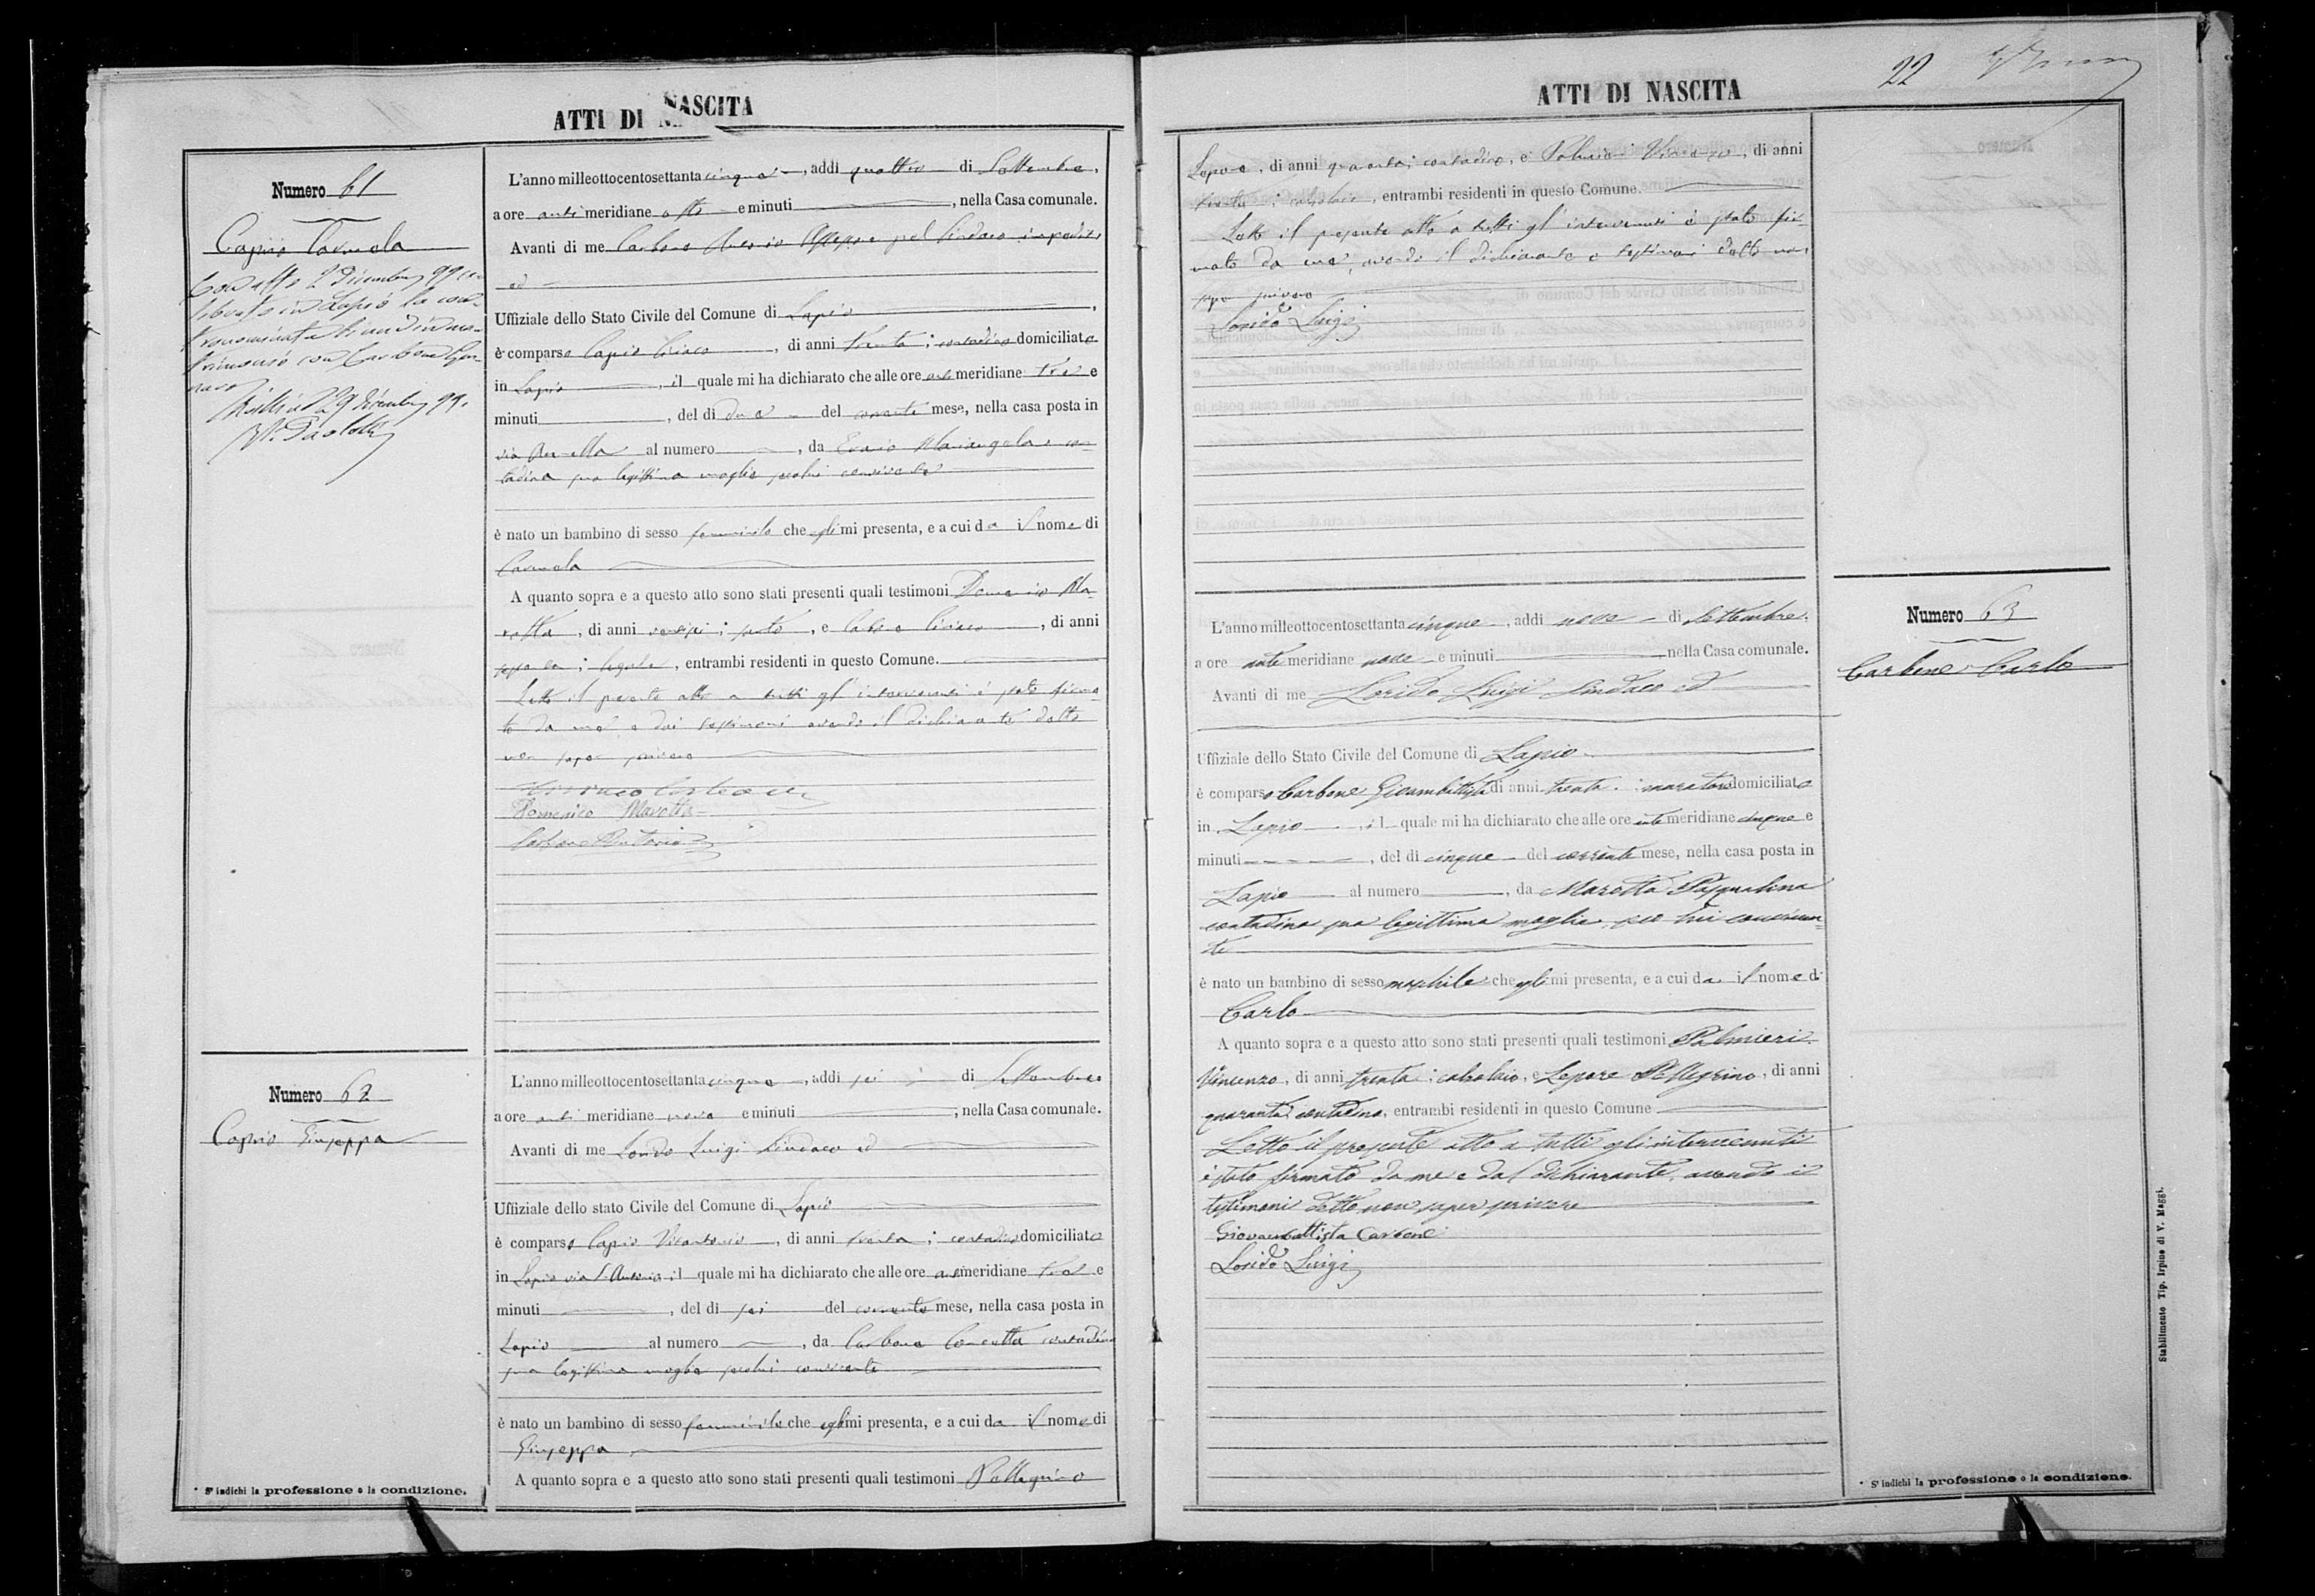 ATTI DI NASCITA
Numero 61
Caprio Carmela
Con atto 2 Dicembre 99 ce-
lebrato in Lapio la con-
tronominata si unì in ma-
trimonio con Carbone Gen-
naro
29 dicembre 99.
L'anno milleottocentosettanta cinque, addì quattro di Settembre,
a ore anti meridiane otto e minuti, nella Casa comunale.
Avanti di me Carbone Assessore pel Sindaco impedito
ed
Uffiziale dello Stato Civile del Comune di Lapio,
è comparso Caprio Ciriaco, di anni trenta; contadino domiciliato
in Lapio, il quale mi ha dichiarato che alle ore anti meridiane tre e
minuti, del dì due del corrente mese, nella casa posta in
via al numero, da Mariangela con-
tadina sua legittima moglie seco lui convivente
è nato un bambino di sesso femminile che egli mi presenta, e a cui da il nome di
Carmela
A quanto sopra e a questo atto sono stati presenti quali testimoni Domenico Ma-
rotta, di anni, e Ciriaco, di anni
sessanta; legale, entrambi residenti in questo Comune.
Letto il presente atto a tutti gl'intervenuti è stato firma-
to da me e dai testimoni avendo il dichiarante detto
non saper scrivere
Domenico Marotta
Numero 62
Caprio Giuseppa
L'anno milleottocentosettanta cinque, addì sei di Settembre
a ore anti meridiane nove e minuti; nella Casa comunale.
Avanti di me Lorido Luigi Sindaco ed
Uffiziale dello stato Civile del Comune di Lapio
è comparso Caprio Vitantonio, di anni trenta; contadino domiciliato
in Lapio via S. Antonio, il quale mi ha dichiarato che alle ore anti meridiane tre e
minuti, del dì sei del corrente mese, nella casa posta in
Lapio al numero, da Carbone Concetta contadina
sua legittima moglie seco lui convivente
è nato un bambino di sesso femminile che egli mi presenta, e a cui da il nome di
Giuseppa
A quanto sopra e a questo atto sono stati presenti quali testimoni Pellegrino
* S' indichi la professione o la condizione.
ATTI DI NASCITA
22
Lepore, di anni quaranta; contadino, e Palmieri Vincenzo, di anni
trenta; calzolaio, entrambi residenti in questo Comune.
Letto il presente atto a tutti gl'intervenuti è stato fir-
mato da me, avendo il dichiarante e testimoni detto non
saper scrivere
Lorido Luigi
Numero 63
Carbone Carlo
L'anno milleottocentosettanta cinque, addì nove di Settembre,
a ore anti meridiane nove e minuti nella Casa comunale.
Avanti di me Lorido Luigi Sindaco ed
Uffiziale dello Stato Civile del Comune di Lapio
è comparso Carbone Giambattista di anni trenta; muratore domiciliato
in Lapio, il quale mi ha dichiarato che alle ore anti meridiane cinque e
minuti, del dì cinque del corrente mese, nella casa posta in
Lapio al numero, da Marotta Pasqualina
contadina sua legittima moglie, seco lui conviven-
te
è nato un bambino di sesso maschile che egli mi presenta, e a cui da il nome di
Carlo
A quanto sopra e a questo atto sono stati presenti quali testimoni Palmieri
Vincenzo, di anni trenta; calzolaio, e Lepore Pellegrino, di anni
quaranta contadino, entrambi residenti in questo Comune
Letto il presente atto a tutti gli intervenuti
è stato firmato da me e dal dichiarante, avendo i
testimoni detto non saper scrivere
Giovambattista Carbone
Lorido Luigi
* S' indichi la professione o la condizione.
Stabilimento Tip. Irpino di V. Maggi.